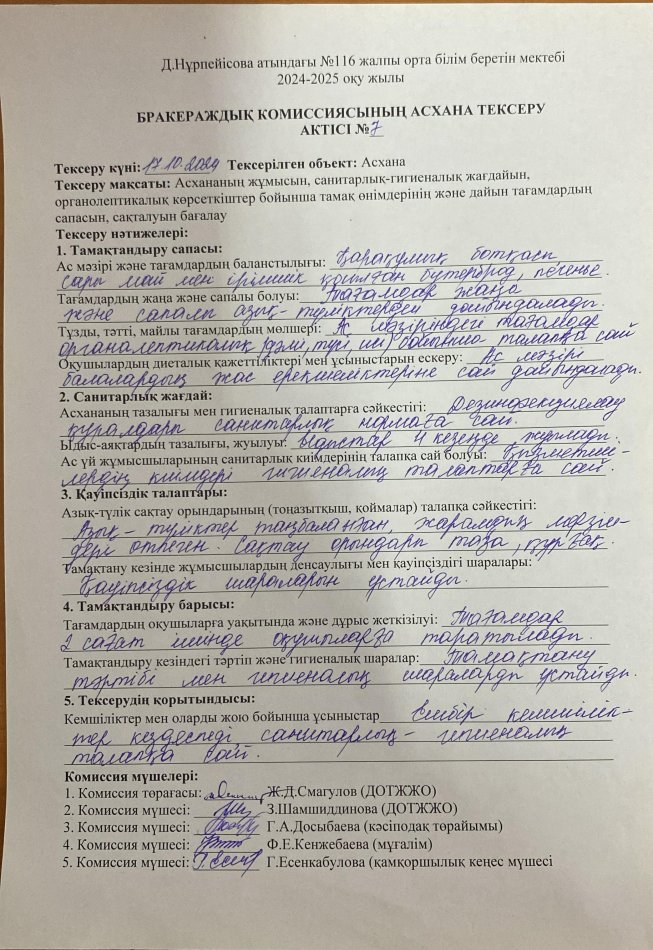 Д.Нұрпейісова атындағы №116 жалпы орта білім беретін мектебі
2024-2025 оқу жылы
БРАКЕРАЖДЫҚ КОМИССИЯСЫНЫҢ АСХАНА ТЕКСЕРУ
АКТІСІ №7
Тексеру күні: 17.10.2024 Тексерілген объект: Асхана
Тексеру мақсаты: Асхананың жұмысын, санитарлық-гигиеналық жағдайын,
органолептикалық көрсеткіштер бойынша тамақ өнімдерінің және дайын тағамдардың
сапасын, сақталуын бағалау
Тексеру нәтижелері:
1. Тамақтандыру сапасы:
Ас мәзірі және тағамдардың баланстылығы: Қарақұмық ботқасы
сары май мен ірімшік қойылған бутерброд, печенье.
Тағамдардың жаңа және сапалы болуы: Тағамдар жаңа
және сапалы азық-түліктерден дайындалады.
Тұзды, тәтті, майлы тағамдардың мөлшері: Ас мәзіріндегі тағамдар
органалептикалық (дәмі, түрі, иісі) бойынша талапқа сай
Оқушылардың диеталық қажеттіліктері мен ұсыныстарын ескеру: Ас мәзірі
балалардың жас ерекшеліктеріне сай дайындалады.
2. Санитарлық жағдай:
Асхананың тазалығы мен гигиеналық талаптарға сәйкестігі: Дезинфекциялау
құралдары санитарлық нормаға сай.
Ыдыс-аяқтардың тазалығы, жуылуы: Ыдыстар 4 кезеңде жуылады.
Ас үй жұмысшыларының санитарлық киімдерінің талапқа сай болуы: Қызметкер-
лердің киімдері гигиеналық талаптарға сай.
3. Қауіпсіздік талаптары:
Азық-түлік сақтау орындарының (тоңазытқыш, қоймалар) талапқа сәйкестігі:
Азық-түліктер таңбаланған, жарамдық мерзім-
дері өтпеген. Сақтау орындары таза, құрғақ.
Тамақтану кезінде жұмысшылардың денсаулығы мен қауіпсіздігі шаралары:
Қауіпсіздік шараларын ұстайды.
4. Тамақтандыру барысы:
Тағамдардың оқушыларға уақытында және дұрыс жеткізілуі: Тағамдар
2 сағат ішінде оқушыларға таратылады.
Тамақтандыру кезіндегі тәртіп және гигиеналық шаралар: Тамақтану
тәртібі мен гигиеналық шараларды ұстайды.
5. Тексерудің қорытындысы:
Кемшіліктер мен оларды жою бойынша ұсыныстар Ешбір кемшілік-
тер кездеспеді санитарлық-гигиеналық
талапқа сай.
Комиссия мүшелері:
1. Комиссия төрағасы: Ж.Д.Смагулов (ДОТЖЖО)
2. Комиссия мүшесі: З.Шамшиддинова (ДОТЖЖО)
3. Комиссия мүшесі: Г.А.Досыбаева (кәсіподақ төрайымы)
4. Комиссия мүшесі: Ф.Е.Кенжебаева (мұғалім)
5. Комиссия мүшесі: Г.Есенкабулова (қамқоршылық кеңес мүшесі